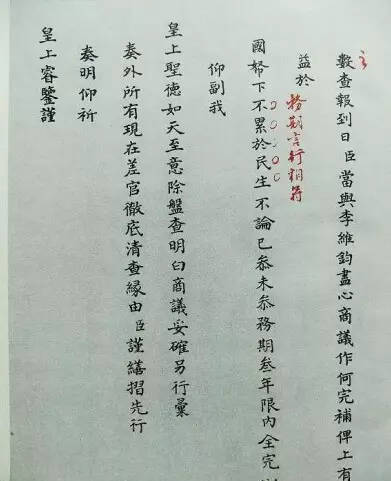 之
數查報到日臣當與李維鈞盡心商議作何完補俾上有
益於
務期言行相符
國帑下不累於民生不論已叅未叅務期叁年限內全完
仰副我
皇上聖德如天至意除盤查明白商議妥確另行彙
奏外所有現在差官徹底清查緣由臣謹繕摺先行
奏明仰祈
皇上睿鑒謹